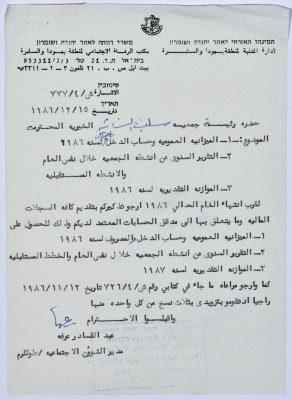 המינהל האזרחי לאזור יהודה ושומרון
الادارة المدنية لمنطقة يهودا والسامرة
משרד רווחה לאזור יהודה ושומרון
مكتب الرفاه الاجتماعي لمنطقة يهودا والسامرة
בית אל ת.ד. 21 טל׳
بيت ايل ص.ب. ٢١ تلفون
סימוכין
الاشارة ش/٤/٧٧٧
תאריך
تاريخ ١٩٨٦/١٢/١٥
حضرة رئيسة جمعية الخيرية المحترمه
الموضوع:- ١- الميزانيه العموميه وحساب الدخل لسنه ١٩٨٦
٢- التقرير السنوى عن انشطه الجمعيه خلال نفس العام
والانشطه المستقبليه
٣- الموازنه التقديريه لسنة
لقرب انتهاء العام الحالي ١٩٨٦ ارجو تذكيركم بتقديم كافه السجلات
الماليه وما يتعلق بها الى مدقق الحسابات المعتمد لديكم وذلك للحصول على
١- الميزانيه العموميه وحساب الدخل والمصروف لسنه ١٩٨٦
٢- التقرير السنوى عن انشطه الجمعيه خلال نفس العام والخطط المستقبليه
٣- الموازنه التقديريه لسنه ١٩٨٧
كما وارجو مراعاه ما جاء في كتابي رقم ش/٤/٧٢٦ تاريخ ١٩٨٦/١١/١٢
راجيا ان تقوموا بتزويدى بثلاث نسخ من كل واحده منها
واقبلوا الاحترام
عبد القادر عرفه
مدير الشؤون الاجتماعيه/طولكرم